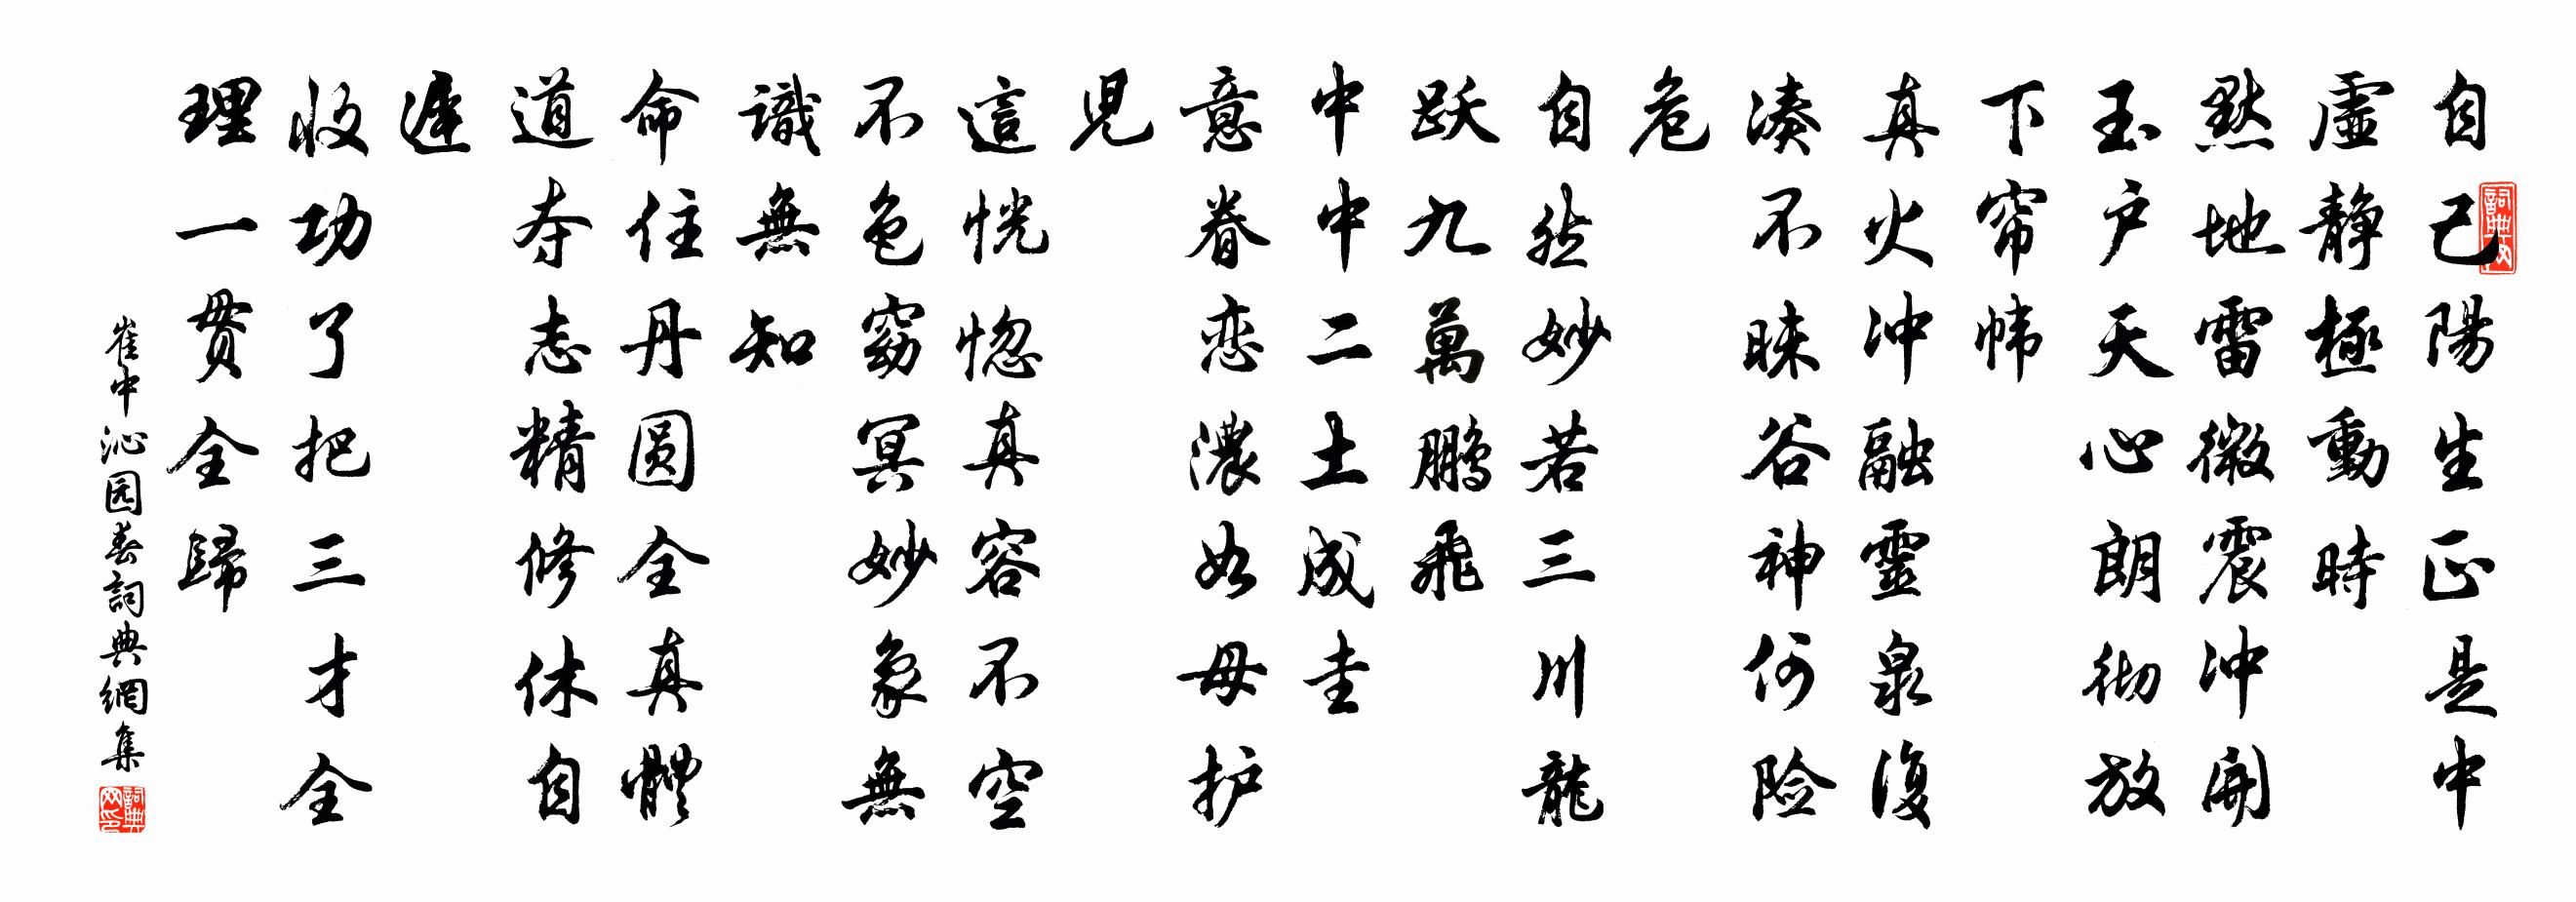 自己陽生正是中
虛静極動時
默地雷微震冲開
玉户天心朗彻放
下帘帏
真火冲融靈泉復
凑不昧谷神何险
危
自然妙若三川龍
跃九萬鹏飛
中中二土成圭
意眷恋濃如母护
児
這恍惚真容不空
不色窈冥妙象無
識無知
命住丹圆全真體
道夺志精修休自
遅
收功了把三才全
理一贯全歸
崔中沁园春詞典網集
詞典网
詞典网印